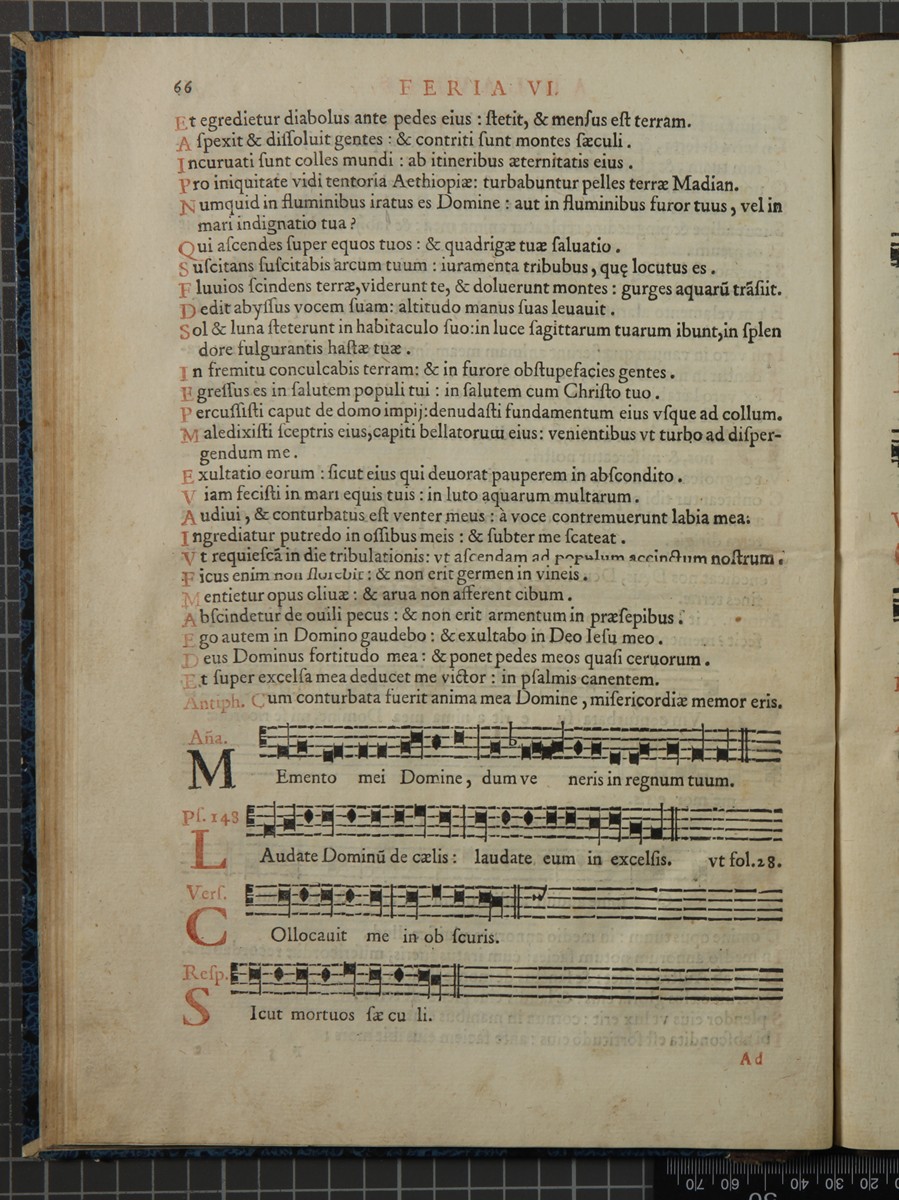 66 FERIA VI.
Et egredietur diabolus ante pedes eius : ſtetit, & menſus eſt terram.
Aſpexit & diſſoluit gentes : & contriti ſunt montes ſæculi .
Incuruati ſunt colles mundi : ab itineribus æternitatis eius .
Pro iniquitate vidi tentoria Aethiopiæ: turbabuntur pelles terræ Madian.
Numquid in fluminibus iratus es Domine : aut in fluminibus furor tuus , vel in
mari indignatio tua ?
Qui aſcendes ſuper equos tuos : & quadrigæ tuæ ſaluatio .
Suſcitans ſuſcitabis arcum tuum : iuramenta tribubus , quę locutus es .
Fluuios ſcindens terræ,viderunt te, & doluerunt montes : gurges aquarū trāſiit.
Dedit abyſſus vocem ſuam: altitudo manus ſuas leuauit .
Sol & luna ſteterunt in habitaculo ſuo:in luce ſagittarum tuarum ibunt,in ſplen
dore fulgurantis haſtæ tuæ .
In fremitu conculcabis terram: & in furore obſtupefacies gentes .
Egreſſus es in ſalutem populi tui : in ſalutem cum Chriſto tuo .
Percuſſiſti caput de domo impij:denudaſti fundamentum eius vſque ad collum.
Maledixiſti ſceptris eius,capiti bellatorum eius: venientibus vt turbo ad diſper-
gendum me .
Exultatio eorum : ſicut eius qui deuorat pauperem in abſcondito .
Viam feciſti in mari equis tuis : in luto aquarum multarum .
Audiui , & conturbatus eſt venter meus : à voce contremuerunt labia mea:
Ingrediatur putredo in oſſibus meis : & ſubter me ſcateat .
Vt requieſcā in die tribulationis: vt aſcendam ad populum accinctum noſtrum .
Ficus enim non florebit : & non erit germen in vineis .
Mentietur opus oliuæ : & arua non afferent cibum .
Abſcindetur de ouili pecus : & non erit armentum in præſepibus .
Ego autem in Domino gaudebo : & exultabo in Deo Ieſu meo .
Deus Dominus fortitudo mea : & ponet pedes meos quaſi ceruorum .
Et ſuper excelſa mea deducet me victor : in pſalmis canentem.
Antiph. Cum conturbata fuerit anima mea Domine , miſericordiæ memor eris.
Aña.
MEmento mei Domine , dum ve neris in regnum tuum.
Pſ. 148
LAudate Dominū de cælis : laudate eum in excelſis. vt fol.28.
Verſ.
COllocauit me in ob ſcuris.
Reſp.
SIcut mortuos ſæ cu li.
Ad